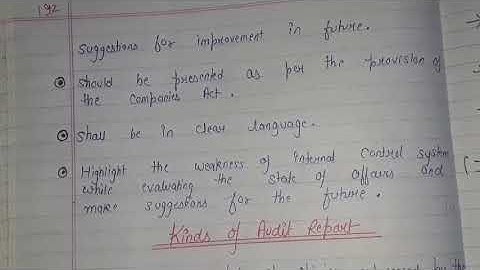 192
suggestions for improvement in future.
should be presented as per the provision of
the Companies Act.
shall be in clear language.
Highlight the weakness of internal control system
while evaluating the state of affairs and
make suggestions for the future.
Kinds of Audit Report